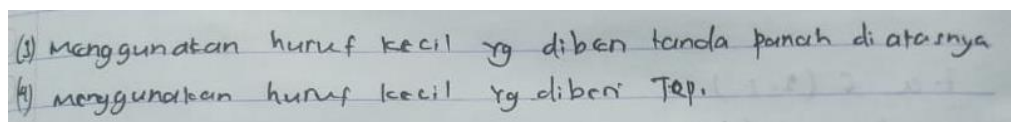 (3) Menggunakan huruf kecil yg diberi tanda panah di atasnya
(4) menggunakan huruf kecil yg diberi Tep.